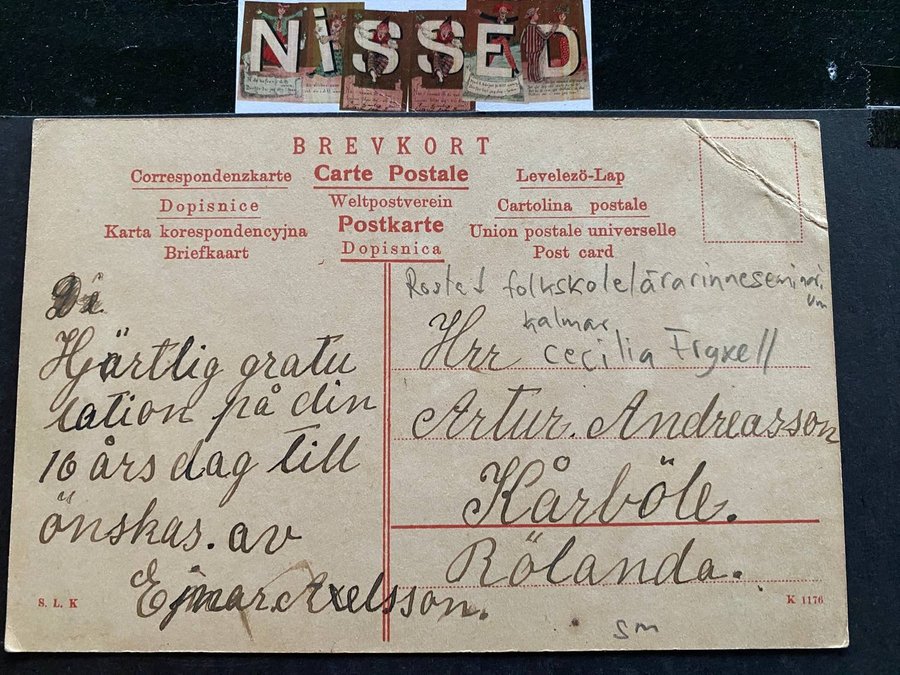 NiSSED
BREVKORT
Correspondenzkarte Carte Postale Levelezö-Lap
Dopisnice Weltpostverein Cartolina postale
Karta korespondencyjna Postkarte Union postale universelle
Briefkaart Dopisnica Post card
Hjärtlig gratu
lation på din
16 års dag till
önskas. av
Ejnar. Axelsson.
Rostad folkskolelärarinneseminari
um
Kalmar
Cecilia Fryxell
Hrr
Artur. Andreasson
Kårböle.
Rölanda.
S. L. K
K 1176
sm